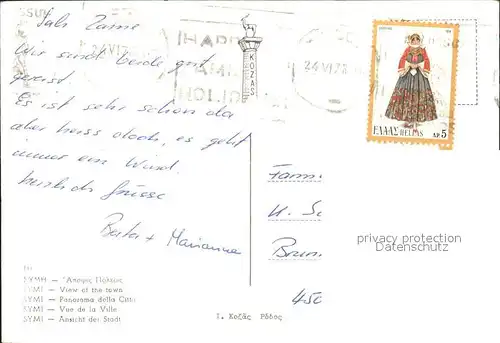 Sali Zäme
Wir sind beide gut
gereist.
Es ist sehr schön da
aber heiss doch, es geht
immer ein Wind.
herzliche Grüsse
Berta + Marianne
24 VI 7
HAPP
HOLID
24 VI 7
ΚΟΖΑΣ
ΕΛΛΑΣ HELLAS ΔΡ 5
Fam
Brun
450
privacy protection
Datenschutz
ΣΥΜΗ — Ἄποψις Πόλεως
SYMI — View of the town
SYMI — Panorama della Citta
SYMI — Vue de la Ville
SYMI — Ansicht der Stadt
Ι. Κοζᾶς Ρόδος